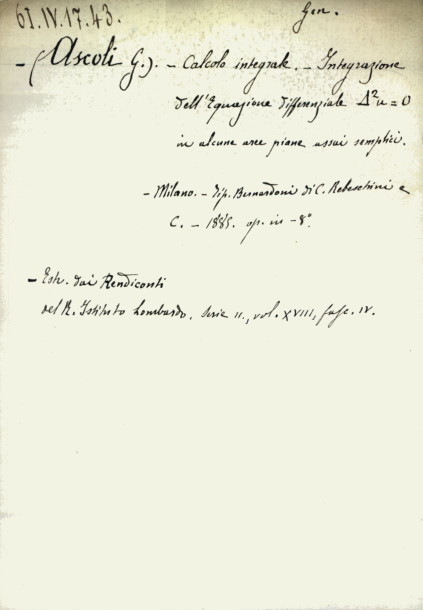 61.IV.17.43.
Gen.
- (Ascoli G.). - Calcolo integrale. - Integrazione
dell'Equazione differenziale Δ²u = 0
in alcune aree piane assai semplici.
- Milano. - Tip. Bernardoni di C. Rebeschini e
C. - 1885. op. in - 8°.
- Estr. dai Rendiconti
del R. Istituto Lombardo, Serie II., vol. XVIII, fasc. IV.